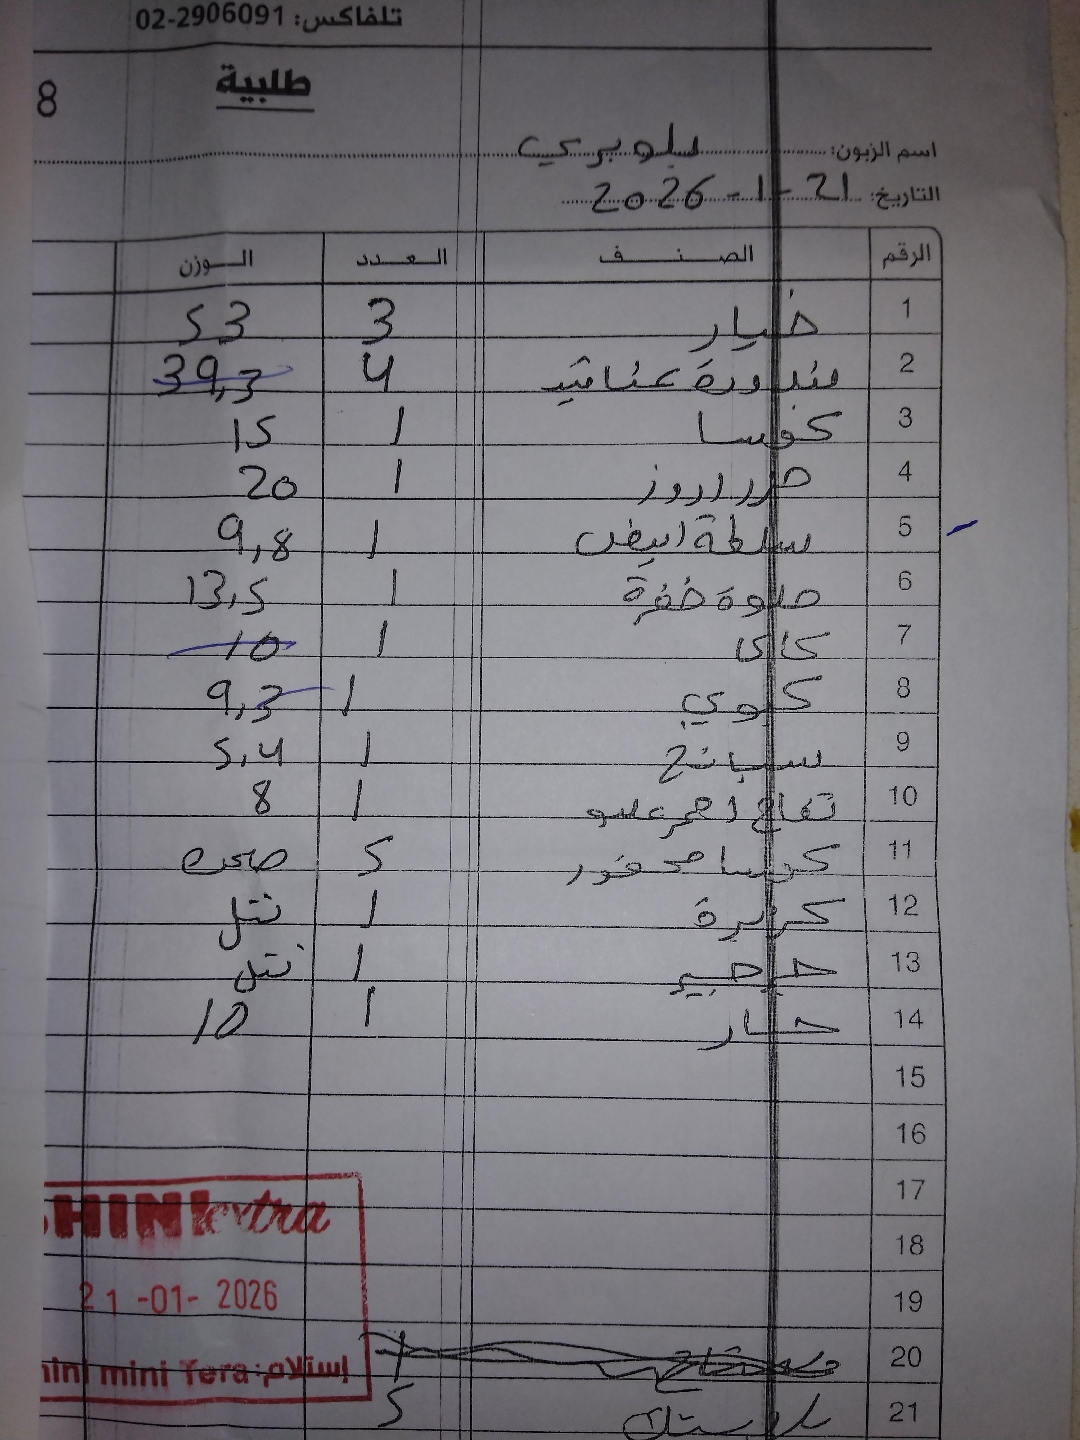 تلفاكس: 02-2906091
طلبية
8
اسم الزبون: بلوبري
التاريخ: 21-1-2026
الرقم الصنف العدد الوزن
1 خيار 3 53
2 بندورة عناقيد 4 39,3
3 كوسا 1 15
4 1 20
5 سلطة ابيض 1 9,8
6 حلوة خضرة 1 13,5
7 كاكا 1 10
8 كيوي 1 9,3
9 سبانخ 1 5,4
10 تفاح احمر 1 8
11 كوسا محفور 5 صحن
12 كزبرة 1 شتل
13 جرجير 1 شتل
14 خيار 1 10
15
16
17
18
19
20
21 بلاستك 5
SHINI extra
21-01-2026
إستلام: mini mini Tera